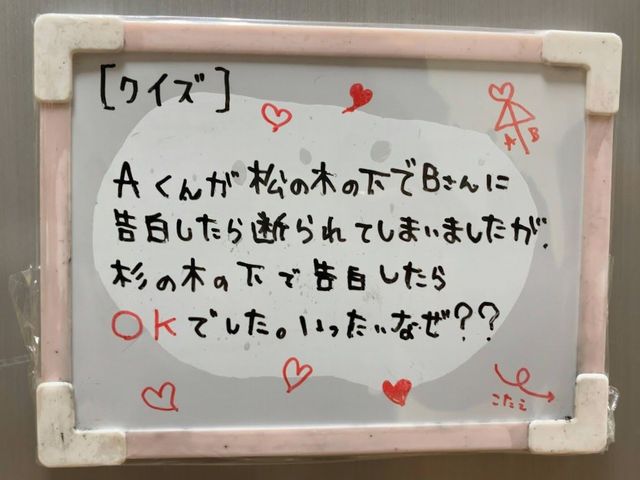 [クイズ]
A B
Aくんが松の木の下でBさんに
告白したら断られてしまいましたが、
杉の木の下で告白したら
OKでした。いったいなぜ??
こたえ